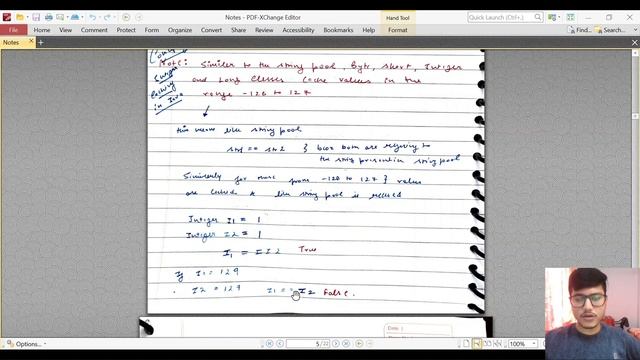 Notes - PDF-XChange Editor
Hand Tool
Quick Launch (Ctrl+.)
File
Home
View
Comment
Protect
Form
Organize
Convert
Share
Review
Bookmarks
Accessibility
Help
Format
Arrange
Find...
Search...
Notes
Note: Similar to the string pool, Byte, short, Integer
and Long Classes Cache values in the
range -128 to 127
Integer
Caching
in Java
this means like string pool
str1 == str2 } bcoz both are referring to
the string present in string pool
Similarly for num from -128 to 127 } values
are cached & like string pool is reused
Integer I1 = 1
Integer I2 = 1
I1 = I2 True
If I1 = 129
I2 = 129 I1 == I2 False.
Date
Options...
5/22
100%